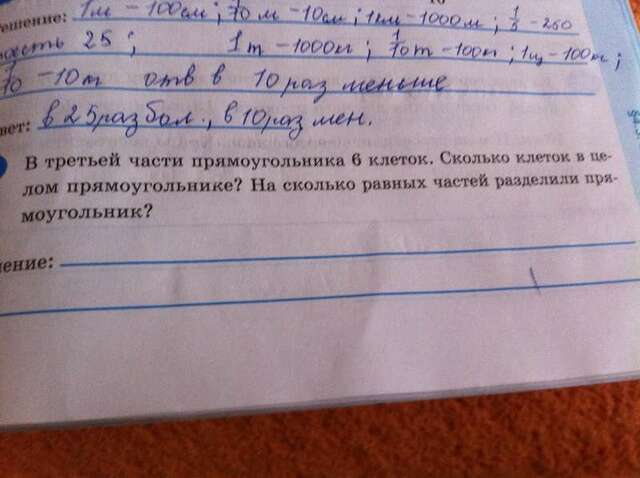 ешение: 1м – 100см; 1/10 м – 10см; 1км – 1000м; 1/5 – 250
часть 25; 1т – 1000кг; 1/10 т – 100кг; 1ц – 100кг;
1/10 – 10 отв в 10 раз меньше
вет: в 25 раз бол., в 10 раз мен.
В третьей части прямоугольника 6 клеток. Сколько клеток в це-
лом прямоугольнике? На сколько равных частей разделили пря-
моугольник?
ение: